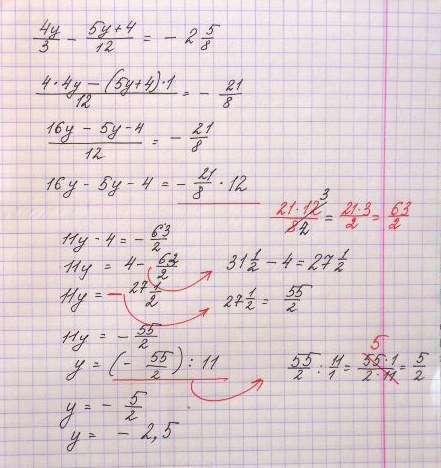 4y/3 - 5y+4/12 = - 2 5/8
4·4y-(5y+4)·1/12 = - 21/8
16y-5y-4/12 = - 21/8
16y-5y-4 = - 21/8 · 12
21·12/8 3 2 = 21·3/2 = 63/2
11y-4 = - 63/2
11y = 4- 63/2
31 1/2 - 4 = 27 1/2
11y = - 27 1/2
27 1/2 = 55/2
11y = - 55/2
y = (- 55/2) : 11
55/2 : 11/1 = 55·1/2·11 5 = 5/2
y = - 5/2
y = - 2,5